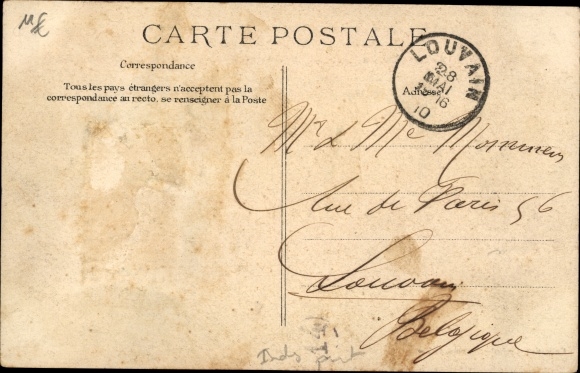 CARTE POSTALE
Correspondance
Tous les pays étrangers n'acceptent pas la
correspondance au recto, se renseigner à la Poste
Adresse
LOUVAIN
28
MAI
16
10
Mr & Me Mommens
Rue de Paris 56
Louvain
Belgique